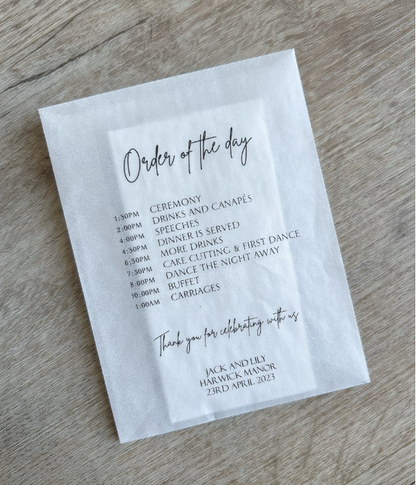 Order of the day
1:30PM CEREMONY
2:00PM DRINKS AND CANAPÈS
4:00PM SPEECHES
4:30PM DINNER IS SERVED
6:30PM MORE DRINKS
7:30PM CAKE CUTTING & FIRST DANCE
8:00PM DANCE THE NIGHT AWAY
10:00PM BUFFET
1:00AM CARRIAGES
Thank you for celebrating with us
JACK AND LILY
HARWICK MANOR
23RD APRIL 2023